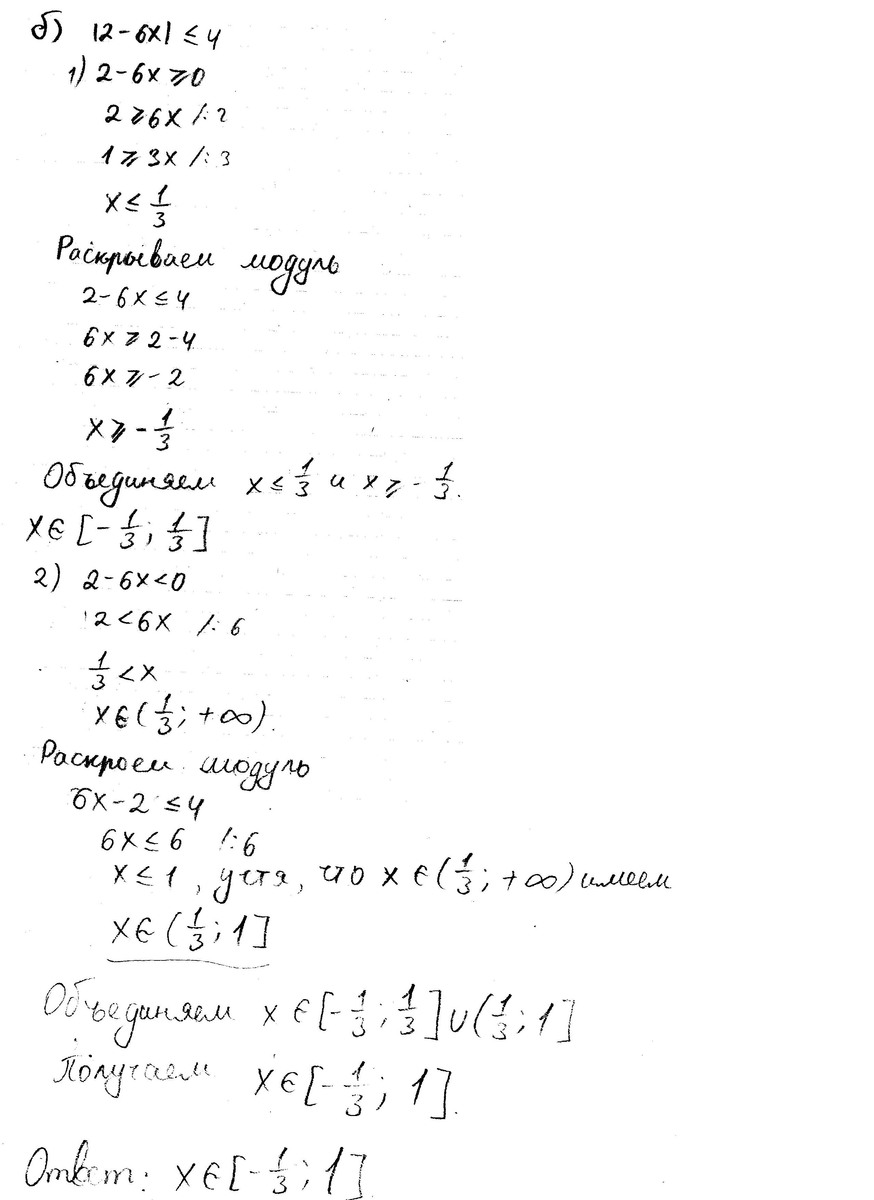 б) |2-6x| ≤ 4
1) 2-6x ⩾ 0
2 ⩾ 6x /:2
1 ⩾ 3x /:3
x ≤ 1/3
Раскрываем модуль
2-6x ≤ 4
6x ⩾ 2-4
6x ⩾ -2
x ⩾ -1/3
Объединяем x ≤ 1/3 и x ⩾ -1/3.
x ∈ [-1/3; 1/3]
2) 2-6x < 0
2 < 6x /:6
1/3 < x
x ∈ (1/3; +∞).
Раскроем модуль
6x-2 ≤ 4
6x ≤ 6 /:6
x ≤ 1, учтя, что x ∈ (1/3; +∞) имеем
x ∈ (1/3; 1]
Объединяем x ∈ [-1/3; 1/3] ∪ (1/3; 1]
Получаем x ∈ [-1/3; 1].
Ответ: x ∈ [-1/3; 1]